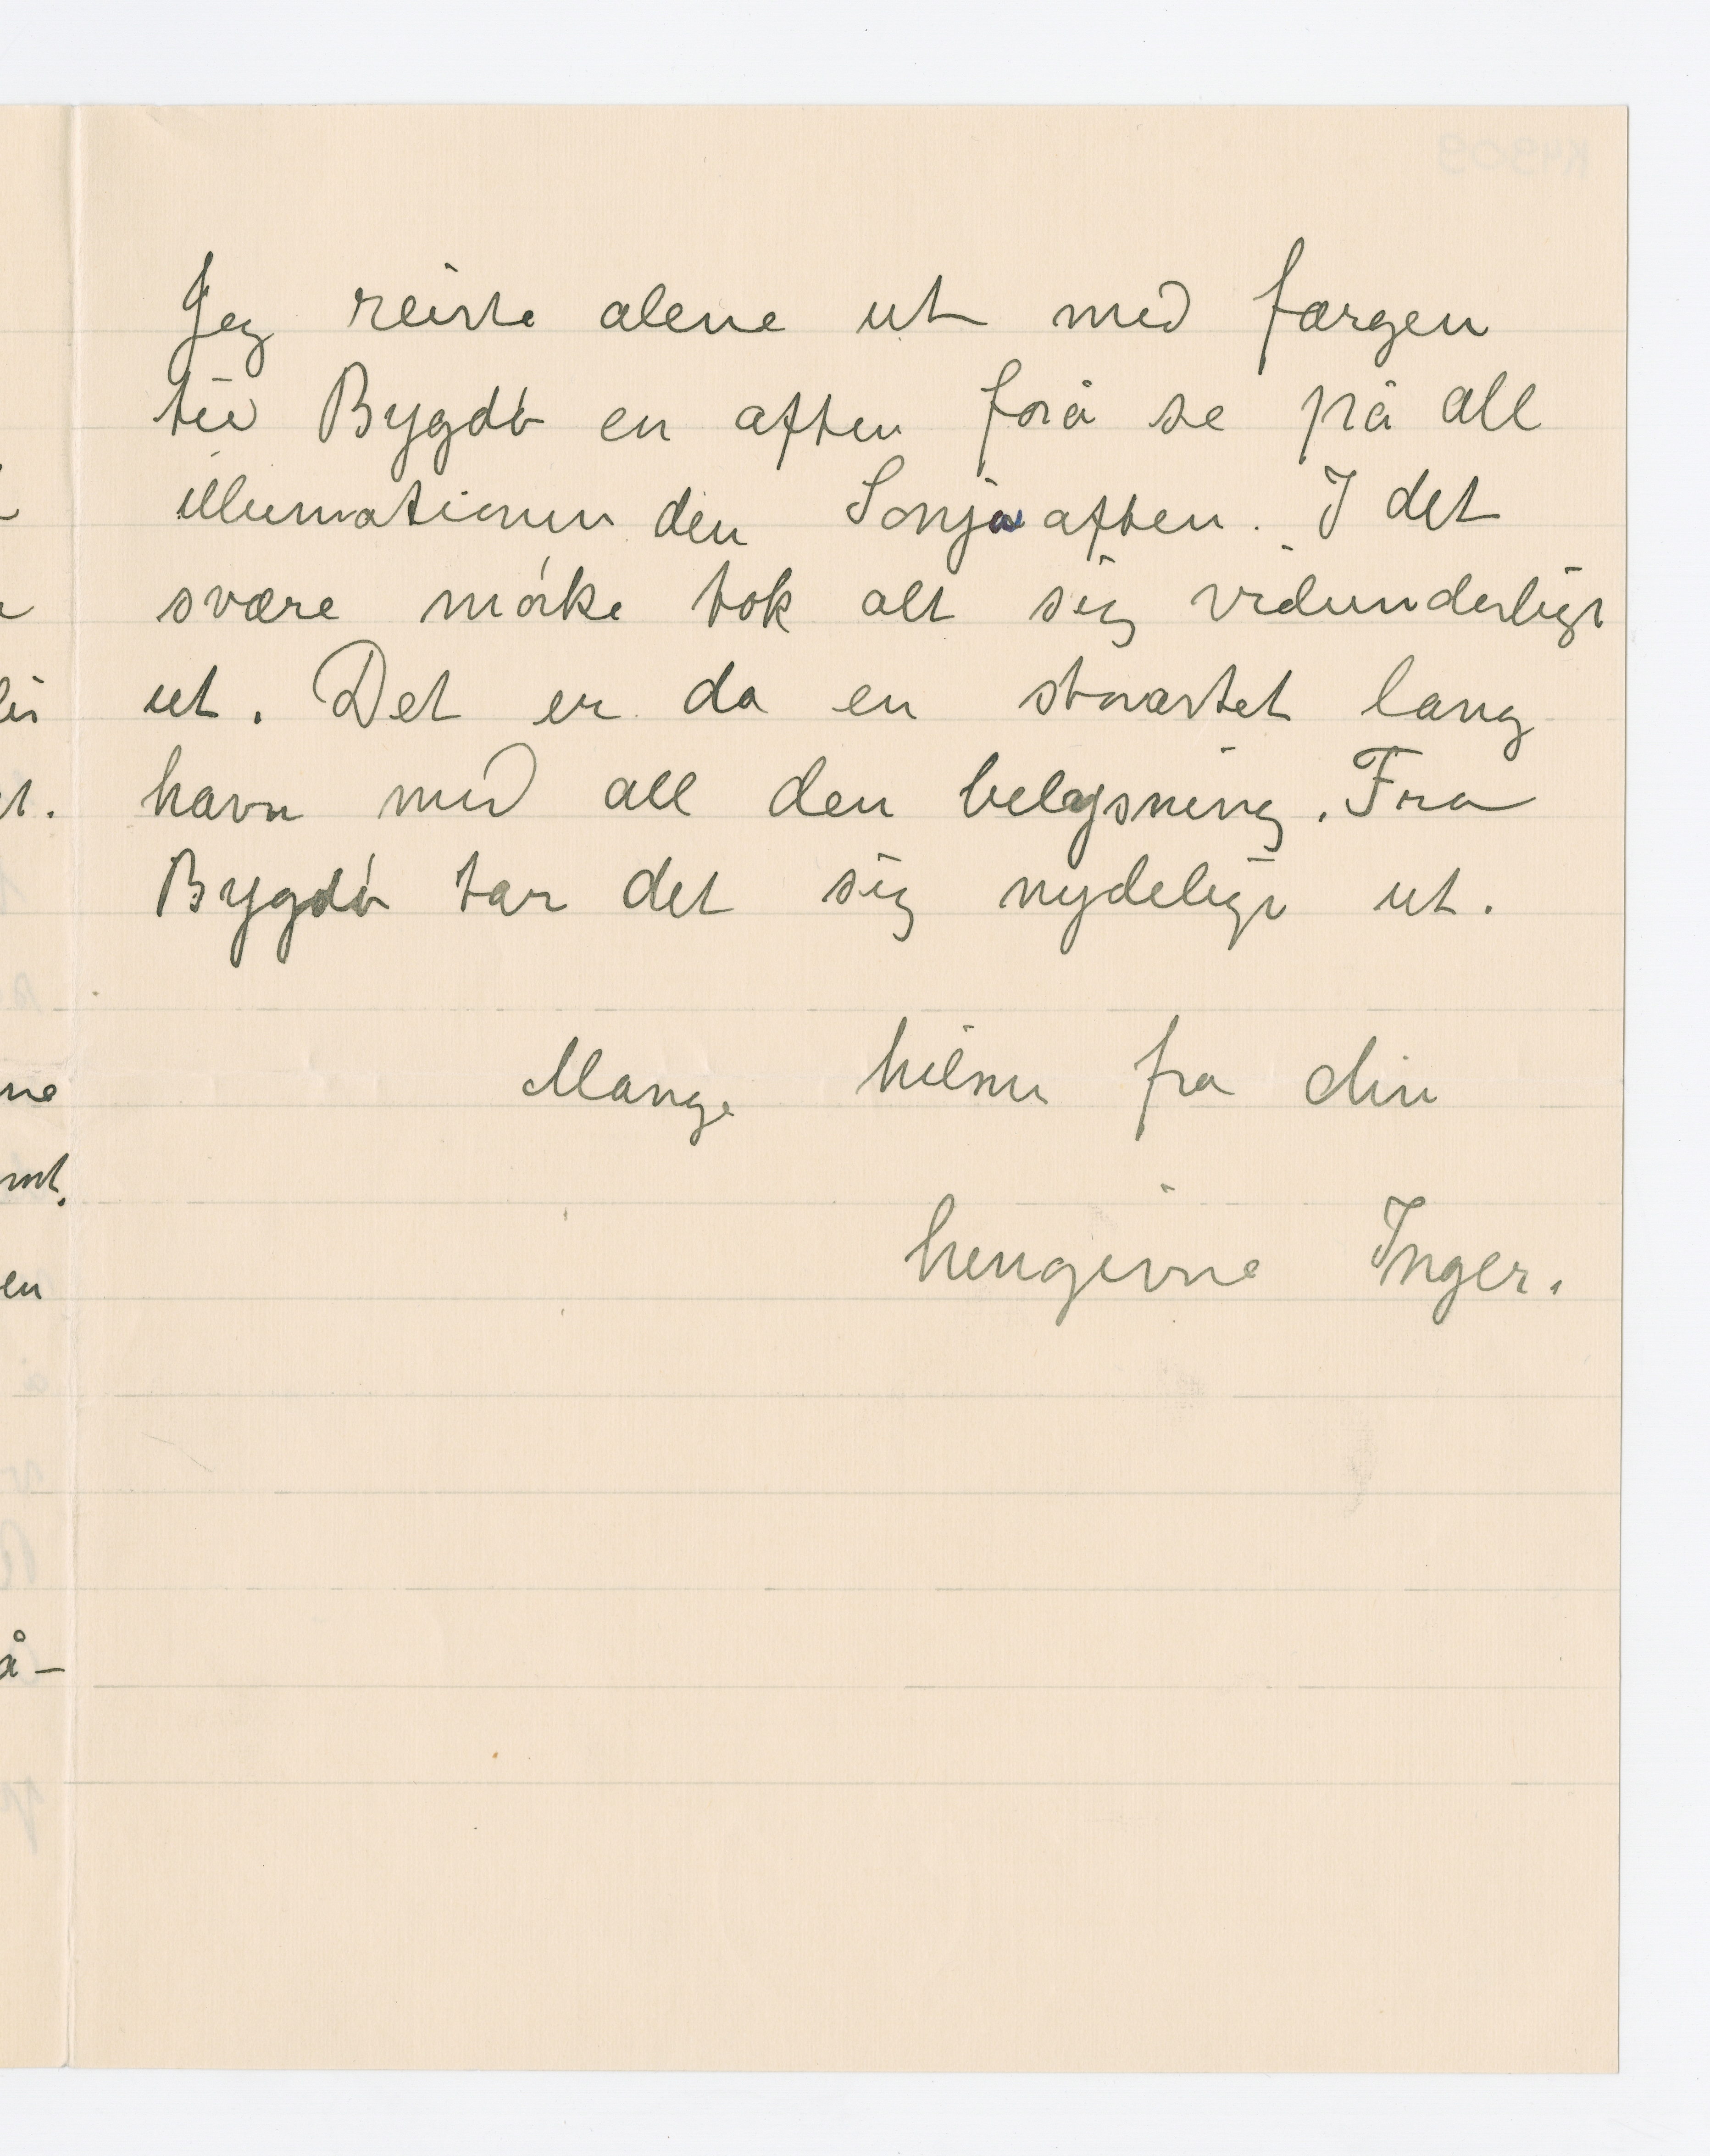 Jeg reiste alene ut med færgen
til Bygdø en aften forå se på all
illumationen den Sonja aften. I det
svære mørke tok alt sig vidunderligt
ut. Det er da en storartet lang
havn med all den belysning. Fra
Bygdø tar det sig nydeligt ut.
Mange hilsner fra din
hengivne Inger.